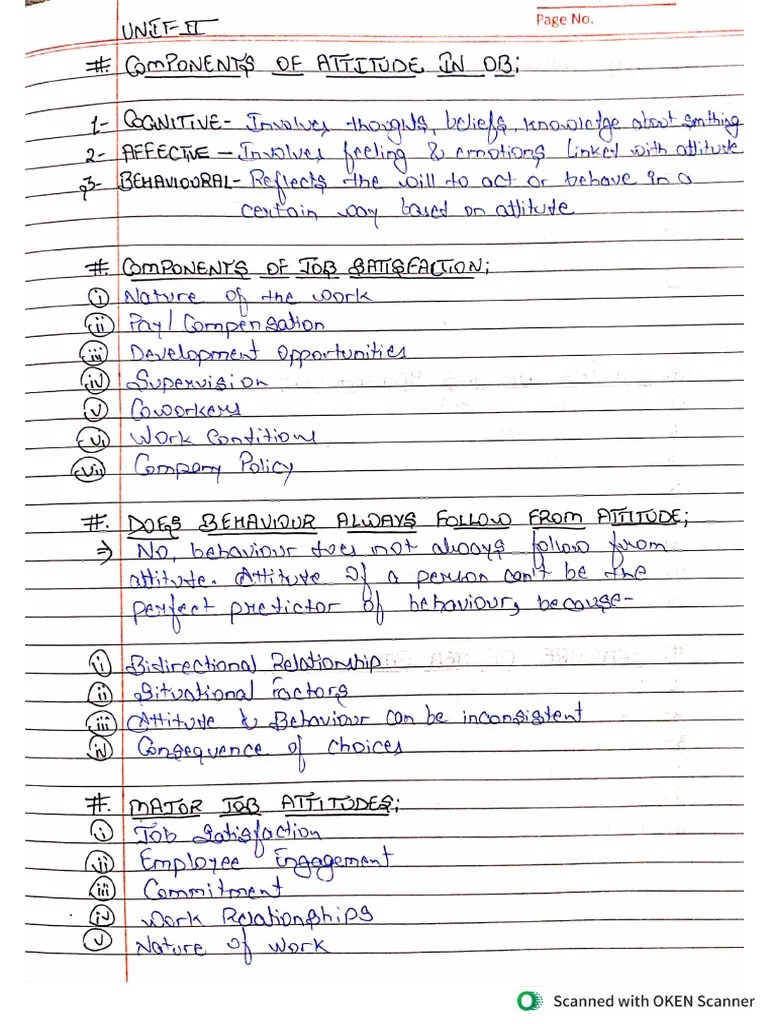 Page No.
UNIT-II
#. COMPONENTS OF ATTITUDE IN OB:
1- COGNITIVE- Involves thoughts, beliefs, knowledge about smthing
2- AFFECTIVE - Involves feeling & emotions linked with attitude
3- BEHAVIOURAL- Reflects the will to act or behave in a
certain way based on attitude
#. COMPONENTS OF JOB SATISFACTION:
(i) Nature of the work
(ii) Pay/ Compensation
(iii) Development Opportunities
(iv) Supervision
(v) Coworkers
(vi) Work Conditions
(vii) Company Policy
#. DOES BEHAVIOUR ALWAYS FOLLOW FROM ATTITUDE;
⇒ No, behaviour does not always follow from
attitude. Attitude of a person can't be the
perfect predictor of behaviour, because-
(i) Bidirectional Relationship
(ii) Situational Factors
(iii) Attitude & Behaviour can be inconsistent
(iv) Consequence of choices
#. MAJOR JOB ATTITUDES;
(i) Job Satisfaction
(ii) Employee Engagement
(iii) Commitment
(iv) Work Relationships
(v) Nature of Work
Scanned with OKEN Scanner